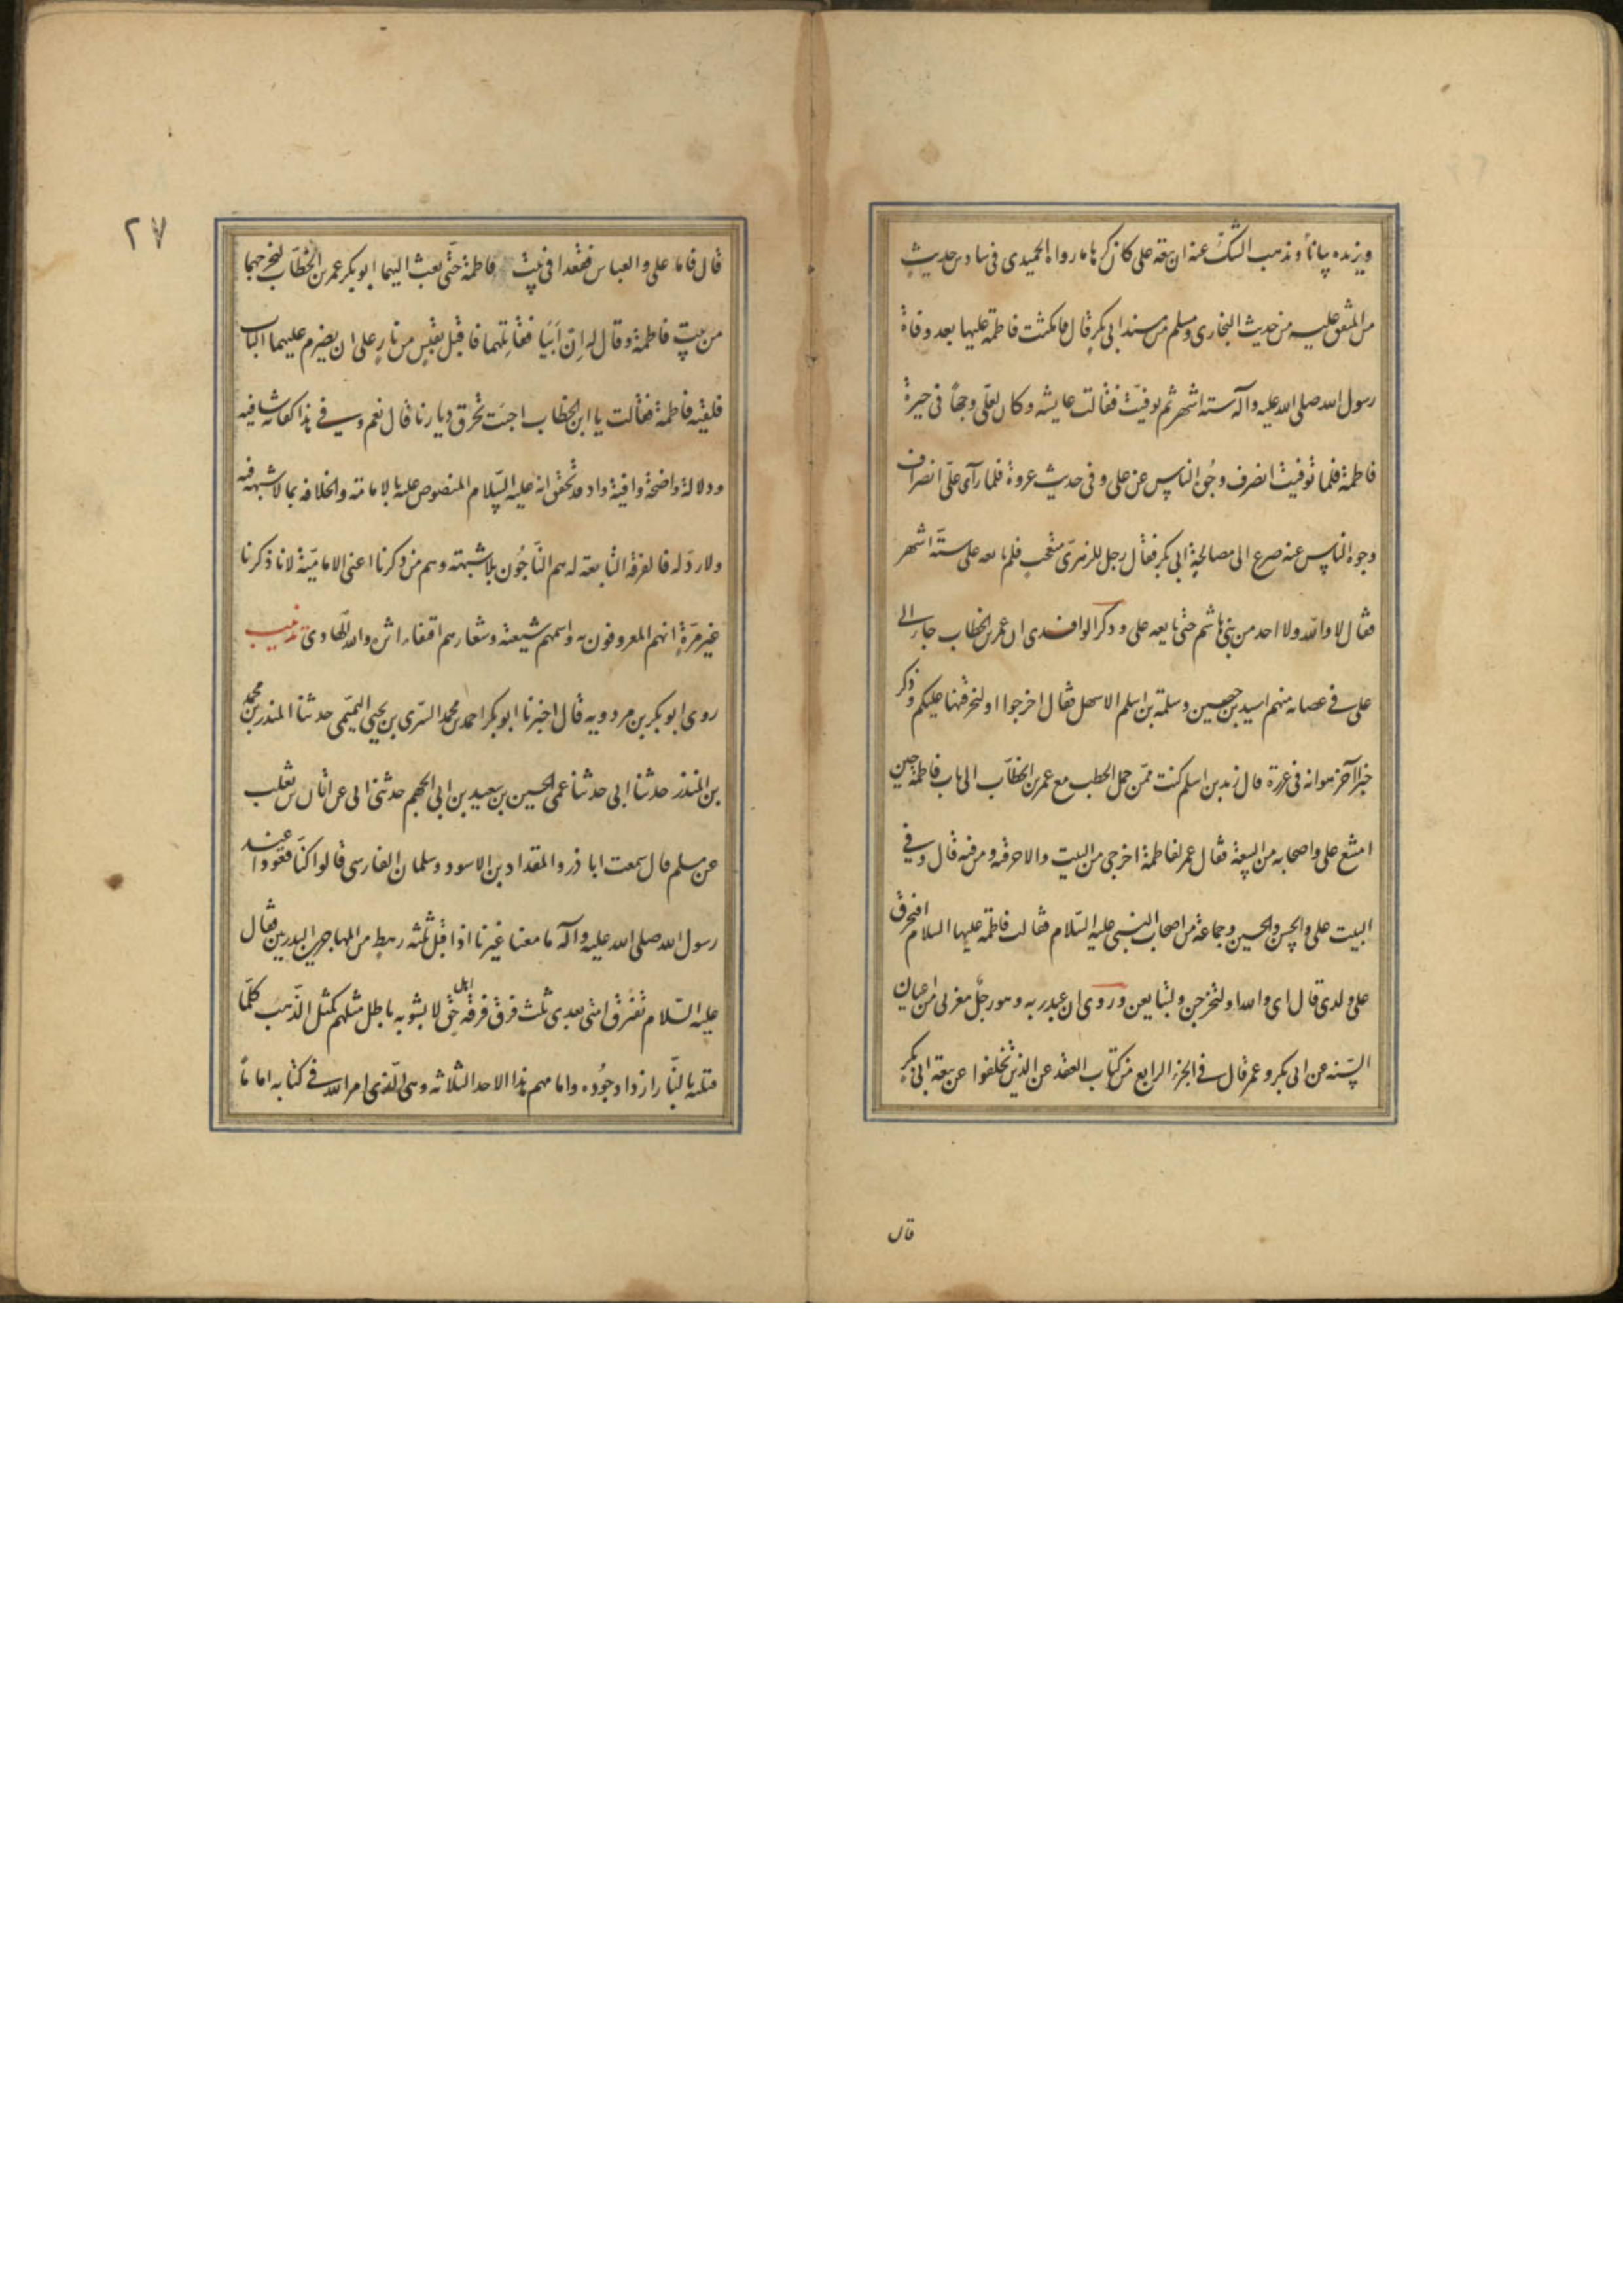 ويزيده بيانا ويذهب الشك عنه ان بيعة على كان كرها ما رواه الحميدى فى سادس حديث
من المتفق عليه من حديث البخارى ومسلم من مسند ابى بكر قال فامكثت فاطمة عليها بعد وفاة
رسول الله صلى الله عليه وآله ستة اشهر ثم توفيت فقالت عايشه وكان لعلى وجها فى حيوة
فاطمة فلما توفيت انصرف وجوه الناس عن على وفى حديث عروة فلما رآى على انصراف
وجوه الناس عنه ضرع الى مصالحة ابى بكر فقال رجل للزهرى فلم يبايعه على ستة اشهر
فقال لا والله ولا احد من بنى هاشم حتى بايعه على وذكر الواقدى ان عمر بن الخطاب جاء الى
على فى عصابه منهم اسيد بن حصين وسلمة بن اسلم الاسهل فقال اخرجوا او لنحرقنها عليكم وذكر
خبرا آخر قال زيد بن اسلم كنت ممن حمل الحطب مع عمر بن الخطاب الى باب فاطمة حين
امتنع على واصحابه من البيعة فقال عمر لفاطمة اخرجى من البيت والا حرقته ومن فيه قال وفى
البيت على والحسن والحسين وجماعة من اصحاب النبى عليه السلام فقالت فاطمة عليها السلام افتحرق
على ولدى قال اى والله او لتخرجن ولتبايعن وروى ابن عبد ربه وهو رجل مغربى من اعيان
السنه عن ابى بكر وعمر قال فى الجزء الرابع من كتاب العقد عن الذين تخلفوا عن بيعة ابى بكر
قال
٢٧
قال فاما على والعباس فقعدا فى بيت فاطمة حتى بعث اليهما ابو بكر عمر بن الخطاب ليخرجهما
من بيت فاطمة وقال له ان أبيا فقاتلهما فاقبل بقبس من نار على ان يضرم عليهما الباب
فلقيته فاطمة فقالت يا ابن الخطاب اجئت تحرق ديارنا قال نعم وفى هذا كفاية شافيه
ودلالة واضحة وافية واذ قد تحقق انه عليه السلام المنصوص عليه بالامامة والخلافه بما لا شبهة فيه
ولا رد له فالفرقة التابعة له هم الناجون بلا شبهة وهم من ذكرنا اعنى الامامية لانا ذكرنا
غير مرة انهم المعروفون به واسمهم شيعته وشعارهم اقتفاء اثره والله الهادى تذنيب
روى ابو بكر بن مردويه قال اخبرنا ابو بكر احمد بن محمد السرى بن يحيى التميمى حدثنا المنذر بن محمد
بن المنذر حدثنا ابى حدثنا عمى الحسين بن سعيد بن ابى الجهم حدثنى ابى عن ابان بن تغلب
عن مسلم قال سمعت ابا ذر والمقداد بن الاسود وسلمان الفارسى قالوا كنا قعودا عند
رسول الله صلى الله عليه وآله ما معنا غيرنا اذ اقبل ثلثه رهط من المهاجرين البدريين فقال
عليه السلام تفترق امتى بعدى ثلث فرق فرقة اهل حق لا يشوبه باطل مثلهم كمثل الذهب كلما
فتنته بالنار ازداد جوده وامامهم هذا لاحد الثلاثه وهو الذى امر الله فى كتابه اماما